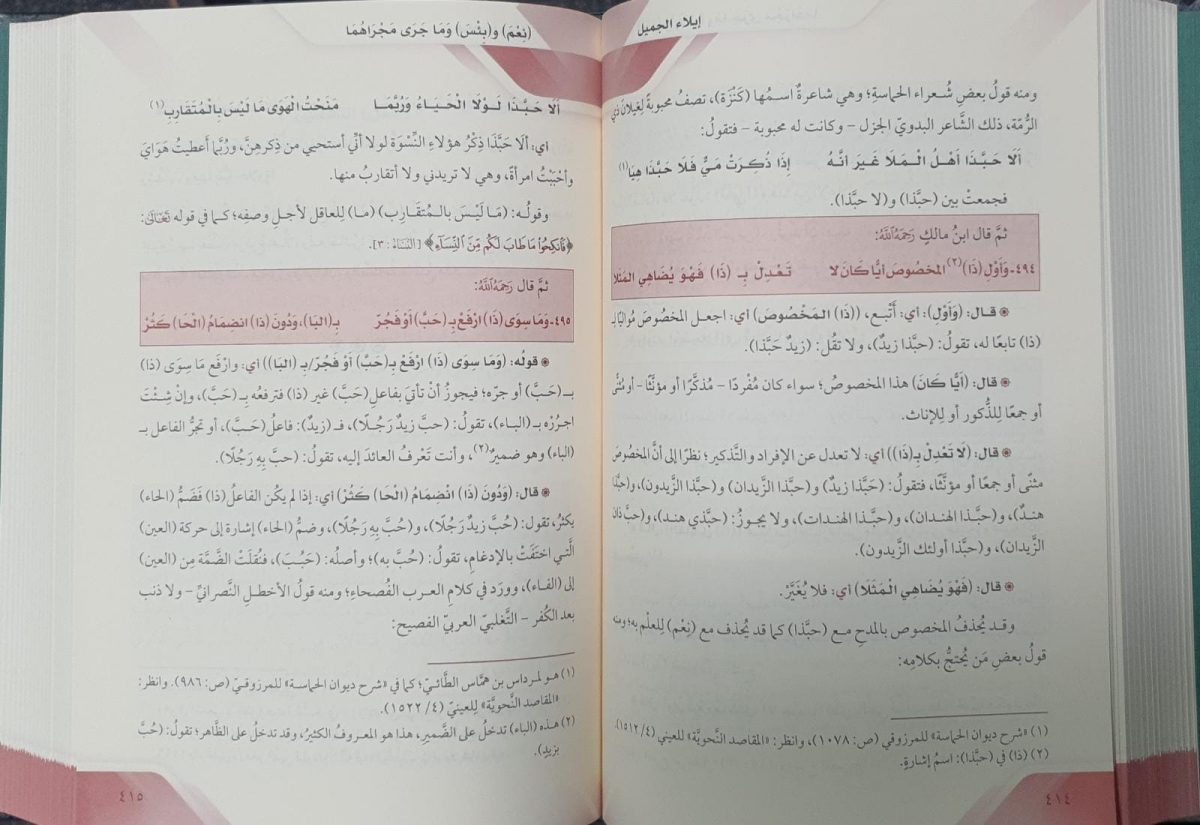 إيلاء الجميل
ومنه قولُ بعضِ شُعراء الحماسةِ؛ وهي شاعرةٌ اسمُها (كَنْزَة)، تصفُ محبوبةً لِغَيلانَ ذي
الرُّمّة، ذلك الشَّاعر البدويّ الجزل – وكانت له محبوبة – فتقولُ:
أَلَا حَبَّذَا أَهْلُ الْمَلَا غَيرَ أنَّهُ إِذَا ذُكِرَتْ مَيٌّ فَلَا حَبَّذَا هِيَا(١)
فجمعتْ بين (حبَّذا) و(لا حبَّذا).
ثمَّ قال ابنُ مالكٍ رَحِمَهُ اللَّهُ:
٤٩٤- وَأَوْلِ (ذَا)(٢) المَخصُوصَ أيًّا كَانَ لا تَعْدِلْ بِـ (ذَا) فَهْوَ يُضَاهِي المَثَلا
قال: (وَأَوْلِ): أي: أَتْبِع، ((ذَا) المَخْصُوصَ) أي: اجعل المخصُوصَ مُواليًا لِـ
(ذا) تابعًا له، تقولُ: (حبَّذا زيدٌ)، ولا تقُل: (زيدٌ حَبَّذا).
قال: (أيًّا كَانَ) هذا المخصوصُ؛ سواء كان مُفْردًا – مُذكَّرًا أو مؤنَّثًا – أو مُثنًّى
أو جمعًا للذُّكور أو للإناث.
قال: (لَا تَعْدِلْ بِـ(ذَا)) أي: لا تعدل عن الإفراد والتَّذكير؛ نظرًا إلى أنَّ المخصُوصَ
مثنًّى أو جمعًا أو مؤنَّثًا، فتقولُ: (حَبَّذا زيدٌ) و(حبَّذا الزَّيدان) و(حبَّذا الزَّيدون)، و(حبَّذا
هندٌ)، و(حبَّذا الهندان)، و(حبَّذا الهندات)، ولا يجوزُ: (حبَّذي هند)، و(حبَّ ذان
الزَّيدان)، و(حبَّذا أولئك الزَّيدون).
قال: (فَهْوَ يُضَاهِي الْمَثَلَا) أي: فلا يُغَيَّرُ.
وقد يُحذفُ المخصوص بالمدحِ مع (حبَّذا) كما قد يُحذف مع (نِعْم) لِلعلْم به؛ ومنه
قولُ بعضِ مَن يُحتجُّ بكلامِه:
(١) «شرح ديوان الحماسة» للمرزوقي (ص: ١٠٧٨)، وانظر: «المقاصد النَّحويَّة» للعيني (٤/ ١٥١٢).
(٢) (ذا) في (حبَّذا): اسمُ إشارةٍ.
٤١٤
(نِعْمَ) و(بِئْسَ) وَمَا جَرَى مَجْرَاهُمَا
أَلَا حَبَّذَا لَوْلَا الْحَيَاءُ وَرُبَّمَا مَنَحْتُ الْهَوَى مَا لَيْسَ بِالْمُتَقَارِبِ(١)
أي: ألَا حَبَّذا ذِكْرُ هؤلاءِ النِّسْوَة لولا أنِّي أستحيي من ذِكرِهنَّ، ورُبَّما أعطيتُ هَوَايَ
وأحْبَبْتُ امرأةً، وهي لا تريدني ولا أتقاربُ منها.
وقولُه: (مَا لَيْسَ بالمُتقَارِب) (ما) لِلعاقل لأجلِ وصفِه؛ كما في قوله تَعَالَى:
﴿فَٱنكِحُوا۟ مَا طَابَ لَكُم مِّنَ ٱلنِّسَآءِ﴾ [النِّسَاءُ: ٣].
ثمَّ قال رَحِمَهُ اللَّهُ:
٤٩٥- وَمَا سِوَى (ذَا) ارْفَعْ بِـ(حَبَّ) أَوْ فَجُرّْ بِـ(البَا)، وَدُونَ (ذَا) انضِمَامُ (الْحَا) كَثُرْ
قولُه: (وَمَا سِوَى (ذَا) ارْفَعْ بِـ(حَبَّ) أَوْ فَجُرّ/ بِـ(البَا)) أي: وارْفَع مَا سِوَى (ذا)
بـ(حَبَّ) أو جرّه؛ فيجوزُ أنْ تأتيَ بفاعلِ (حَبَّ) غير (ذا) فترفعُه بِـ(حَبَّ)، وإنْ شِئْتَ
اجرُرْه بـ(الباء)، تقولُ: (حبَّ زيدٌ رَجُلًا)، فـ(زيدٌ): فاعلُ (حَبَّ)، أو تجرُّ الفاعل بـ
(الباء) وهو ضميرٌ(٢)، وأنت تَعْرفُ العائدَ إليه، تقولُ: (حبَّ بِهِ رَجُلًا).
قال: (وَدُونَ (ذَا) انْضِمَامُ (الْحَا) كَثُرْ) أي: إذا لم يكُن الفاعلُ (ذا) فَضَمُّ (الحاء)
يكثرُ، تقول: (حُبَّ زيدٌ رَجُلًا)، و(حُبَّ بِهِ رَجُلًا)، وضمُّ (الحاء) إشارة إلى حركة (العين)
الَّتي اختفَتْ بالإدغامِ، تقولُ: (حُبَّ به)؛ وأصلُه: (حَبُبَ)، فنُقلَتْ الضَّمَّة مِن (العين)
إلى (الفاء)، وورَد في كلامِ العرب الفُصحاءِ؛ ومنه قولُ الأخطلِ النَّصرانيِّ – ولا ذنب
بعد الكُفر – التَّغلبيّ العربيّ الفصيح:
(١) هو لمرداس بن هَمَّاس الطَّائيِّ؛ كما في «شرح ديوان الحماسة» للمرزوقيّ (ص: ٩٨٦). وانظر:
«المقاصد النَّحويَّة» لِلعينيّ (٤/ ١٥٢٢).
(٢) هذه (الباء) تدخلُ على الضَّميرِ، هذا هو المعروفُ الكثيرُ، وقد تدخلُ على الظَّاهر؛ تقولُ: (حُبَّ
بزيدٍ).
٤١٥